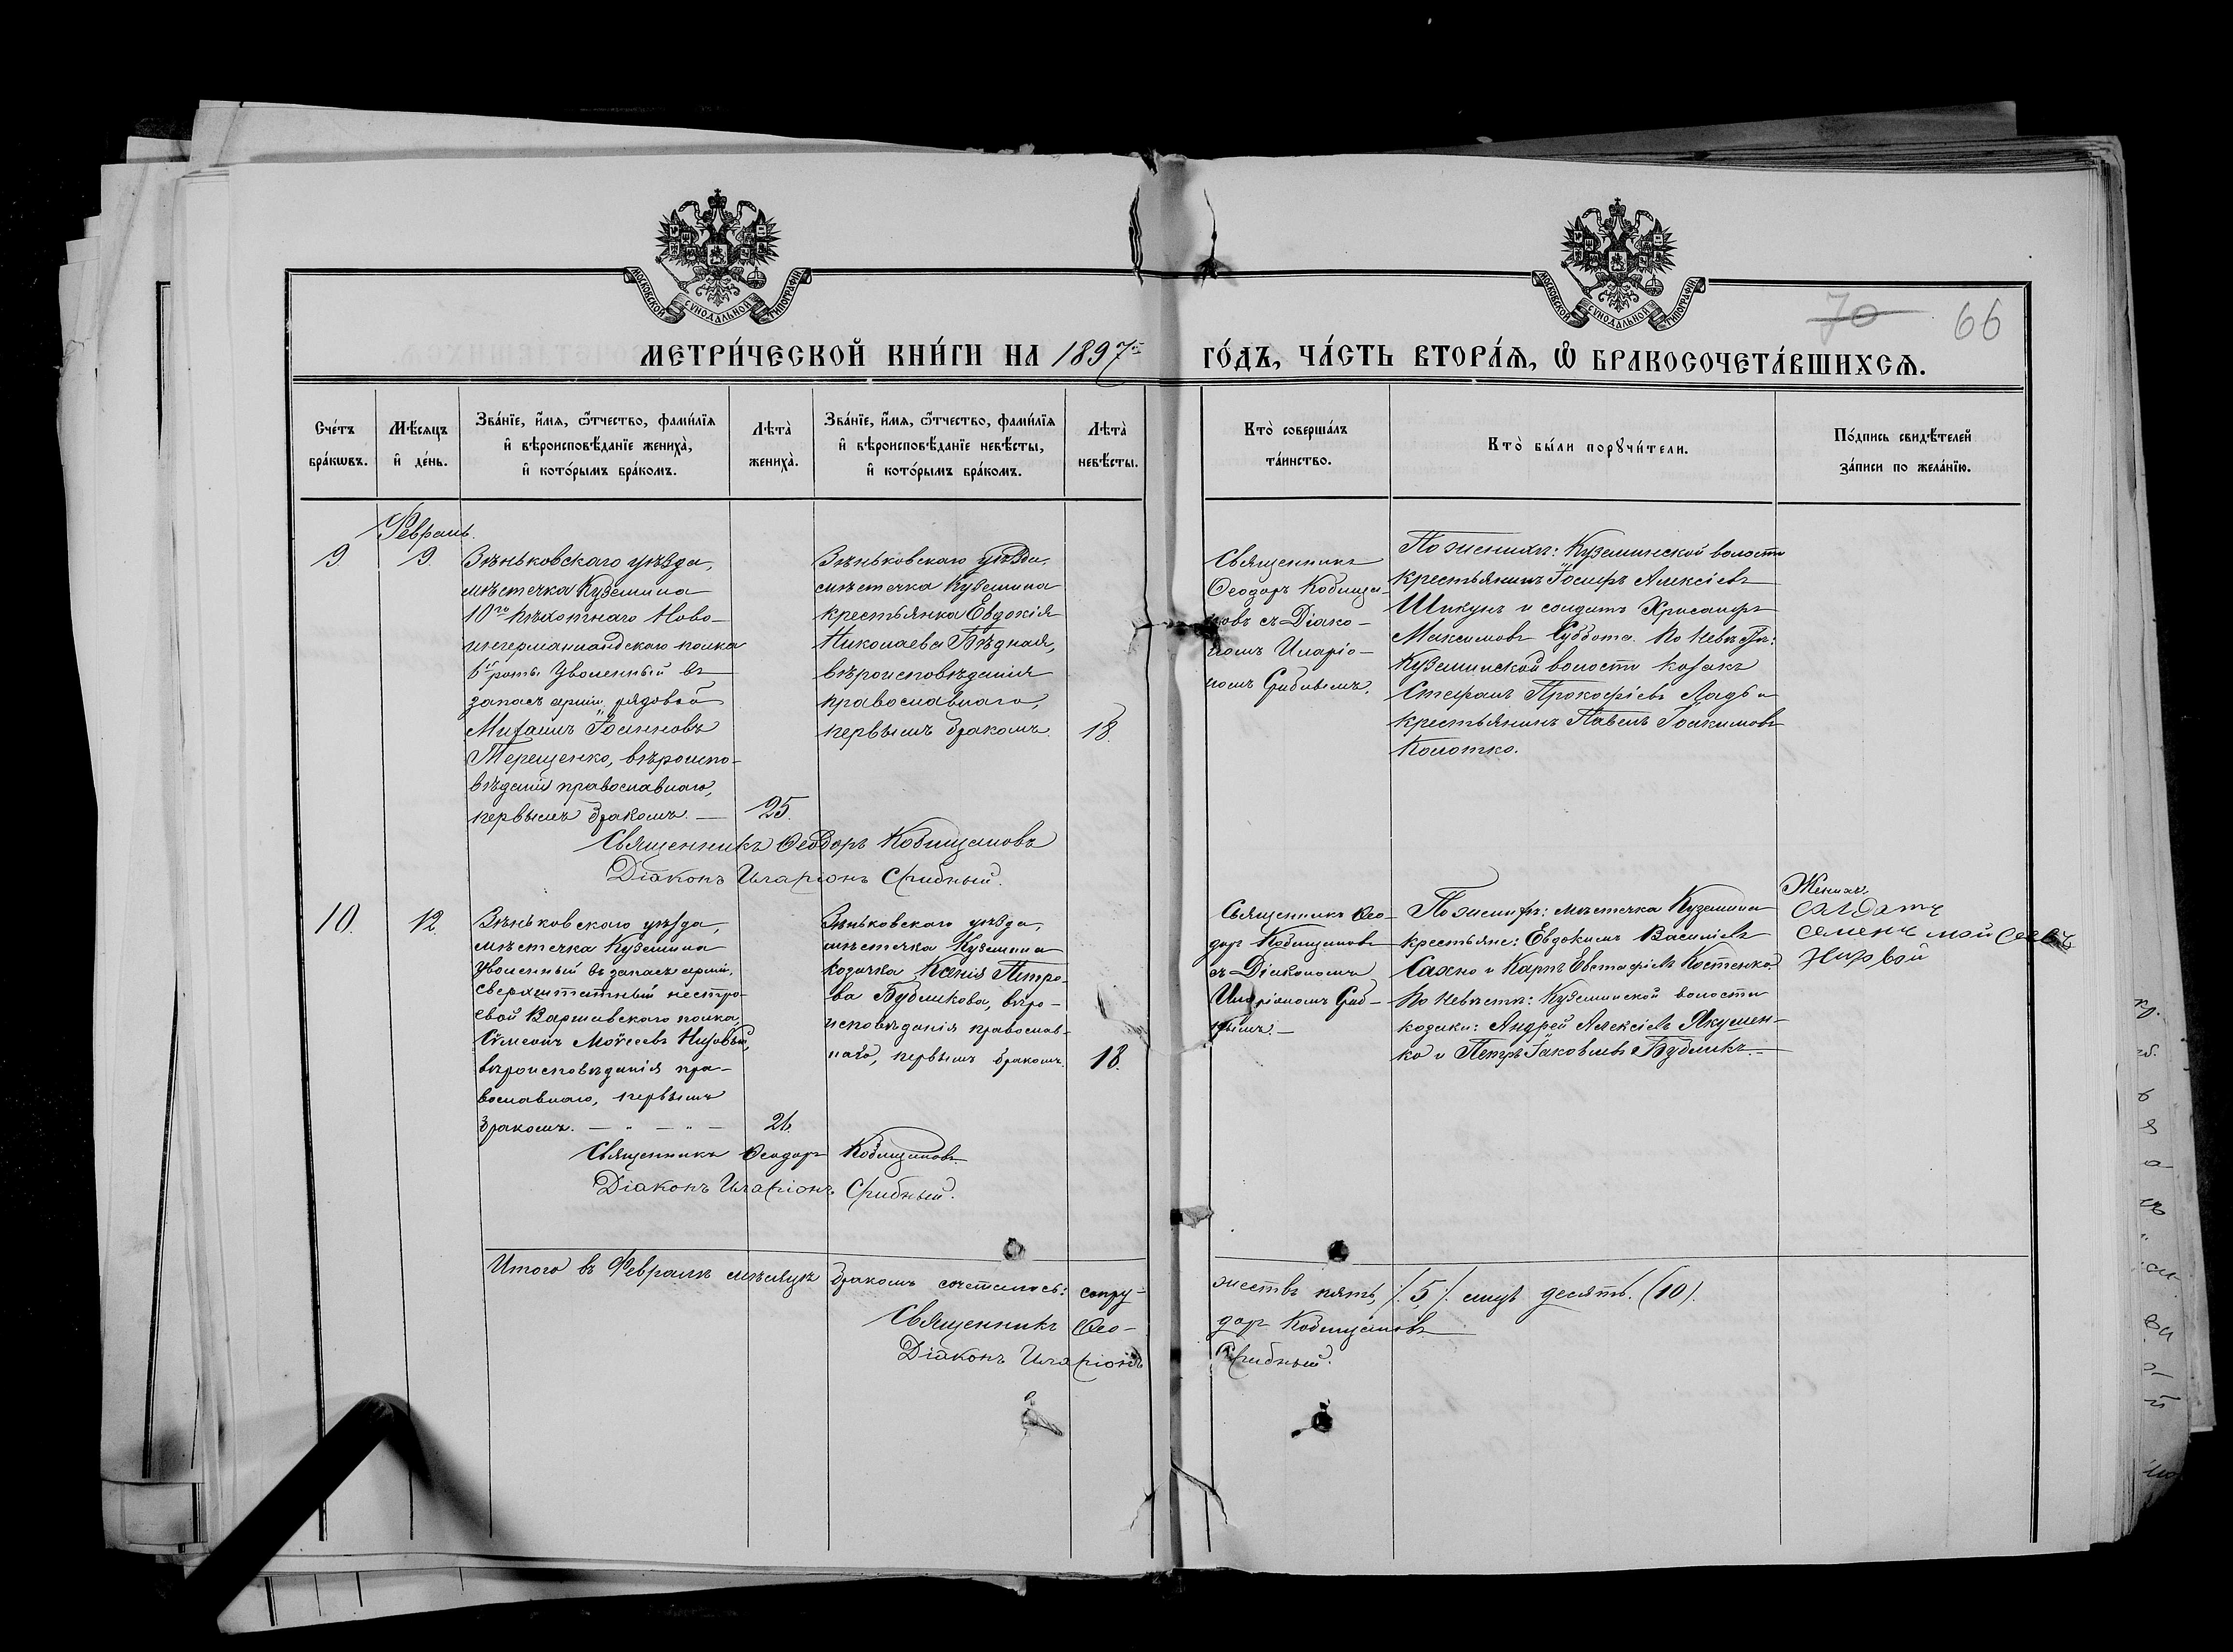 МОСКОВСКОЙ СѴНОДАЛЬНОЙ ТИПОГРАФІИ
МОСКОВСКОЙ СѴНОДАЛЬНОЙ ТИПОГРАФІИ
70 66
МЕТРИ́ЧЕСКОЙ КНИ́ГИ НА 1897й ГО́ДЪ, ЧА́СТЬ ВТОРА́Ѧ, Ѡ БРАКОСОЧЕТА́ВШИХСѦ.
Сче́тъ
бра́кѡвъ.
Мѣ́сѧцъ
и҆ де́нь.
Зва́нїе, и҆́мѧ, ѻ҆́тчество, фами́лїѧ
и҆ вѣроисповѣ́данїе жениха̀,
и҆ кото́рымъ бра́комъ.
Лѣта̀
жениха̀.
Зва́нїе, и҆́мѧ, ѻ҆́тчество, фами́лїѧ
и҆ вѣроисповѣ́данїе невѣ́сты,
и҆ кото́рымъ бра́комъ.
Лѣта̀
невѣ́сты.
Кто̀ соверша́лъ
та́инство.
Кто̀ бы́ли порꙋчи́тели.
По́дпись свидѣ́телей
за́писи по жела́нїю.
Февраль.
9
9.
Зѣньковскаго уѣзда,
мѣстечка Куземина
10го пѣхотнаго Ново-
ингерманландскаго полка
6й роты уволенный въ
запасъ арміи рядовой
Михаилъ Іоанновъ
Терещенко, вѣроиспо-
вѣданія православнаго,
первымъ бракомъ. —
25.
Зѣньковскаго уѣзда,
мѣстечка Куземина
крестьянка Евдокія
Николаева Бѣдная,
вѣроисповѣданія
православнаго,
первымъ бракомъ.
18.
Священникъ
Ѳеодоръ Кобищa-
новъ съ Діако-
номъ Иларіо-
номъ Срибнымъ.
По женихѣ: Куземинской волости
крестьянинъ Іосифъ Алексіевъ
Шикунъ и солдатъ Хрисанфъ
Максимовъ Суббота. По невѣстѣ:
Куземинской волости козакъ
Стефанъ Прокофіевъ Лядь и
крестьянинъ Павелъ Іоакимовъ
Колотко.
Священникъ Ѳеодоръ Кобищановъ
Діаконъ Иларіонъ Срибный.
10.
12.
Зѣньковскаго уѣзда,
мѣстечка Куземина
уволенный въ запасъ арміи,
сверхштатный нестро-
евой Варшавскаго полка,
Сѵмеонъ Моѵсеевъ Низовый,
вѣроисповѣданія пра-
вославнаго, первымъ
бракомъ. — " — " —
26.
Зѣньковскаго уѣзда,
мѣстечка Куземина
козачка Ксенія Петро-
ва Бубликова, вѣро-
исповѣданія православ-
наго, первымъ бракомъ.
18.
Священникъ Ѳео-
доръ Кобищановъ
съ Діакономъ
Иларіономъ Сриб-
нымъ. —
По женихѣ: мѣстечка Куземина
крестьяне: Евдокимъ Василіевъ
Сахно и Карпъ Евстафіевъ Костенко.
По невѣстѣ: Куземинской волости
козаки: Андрей Алексіевъ Якушен-
ко и Петръ Іаковлевъ Бубликъ. —
Женихъ.
Салдатъ
Семенъ мойсеевъ
Священникъ Ѳеодоръ Кобищановъ.
Діаконъ Иларіонъ Срибный.
Итого въ Февралѣ мѣсяцѣ бракомъ сочеталось: супру-
жествъ пять, /. 5 /. лицъ десять. (10).
Священникъ Ѳео-
доръ Кобищановъ
Діаконъ Иларіонъ
Срибный.